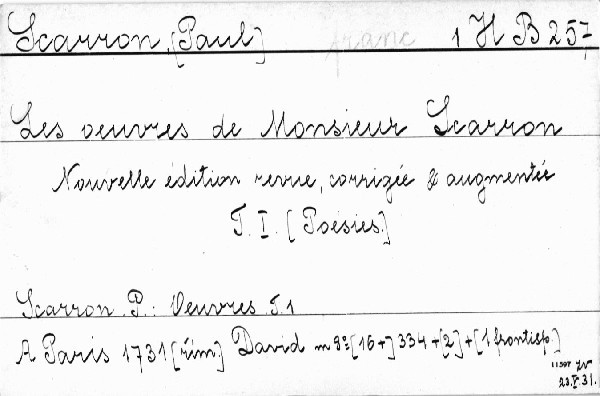 Scarron, [Paul] franc 1 H B 257
Les oeuvres de Monsieur Scarron
Nouvelle édition revue, corrigée & augmentée
T. I. [Poésies.]
Scarron P.: Oeuvres T. 1
A Paris 1731 [rím] David m 8º [16+] 334 + [2] + [1 frontisp.]
11597
23.V.31.